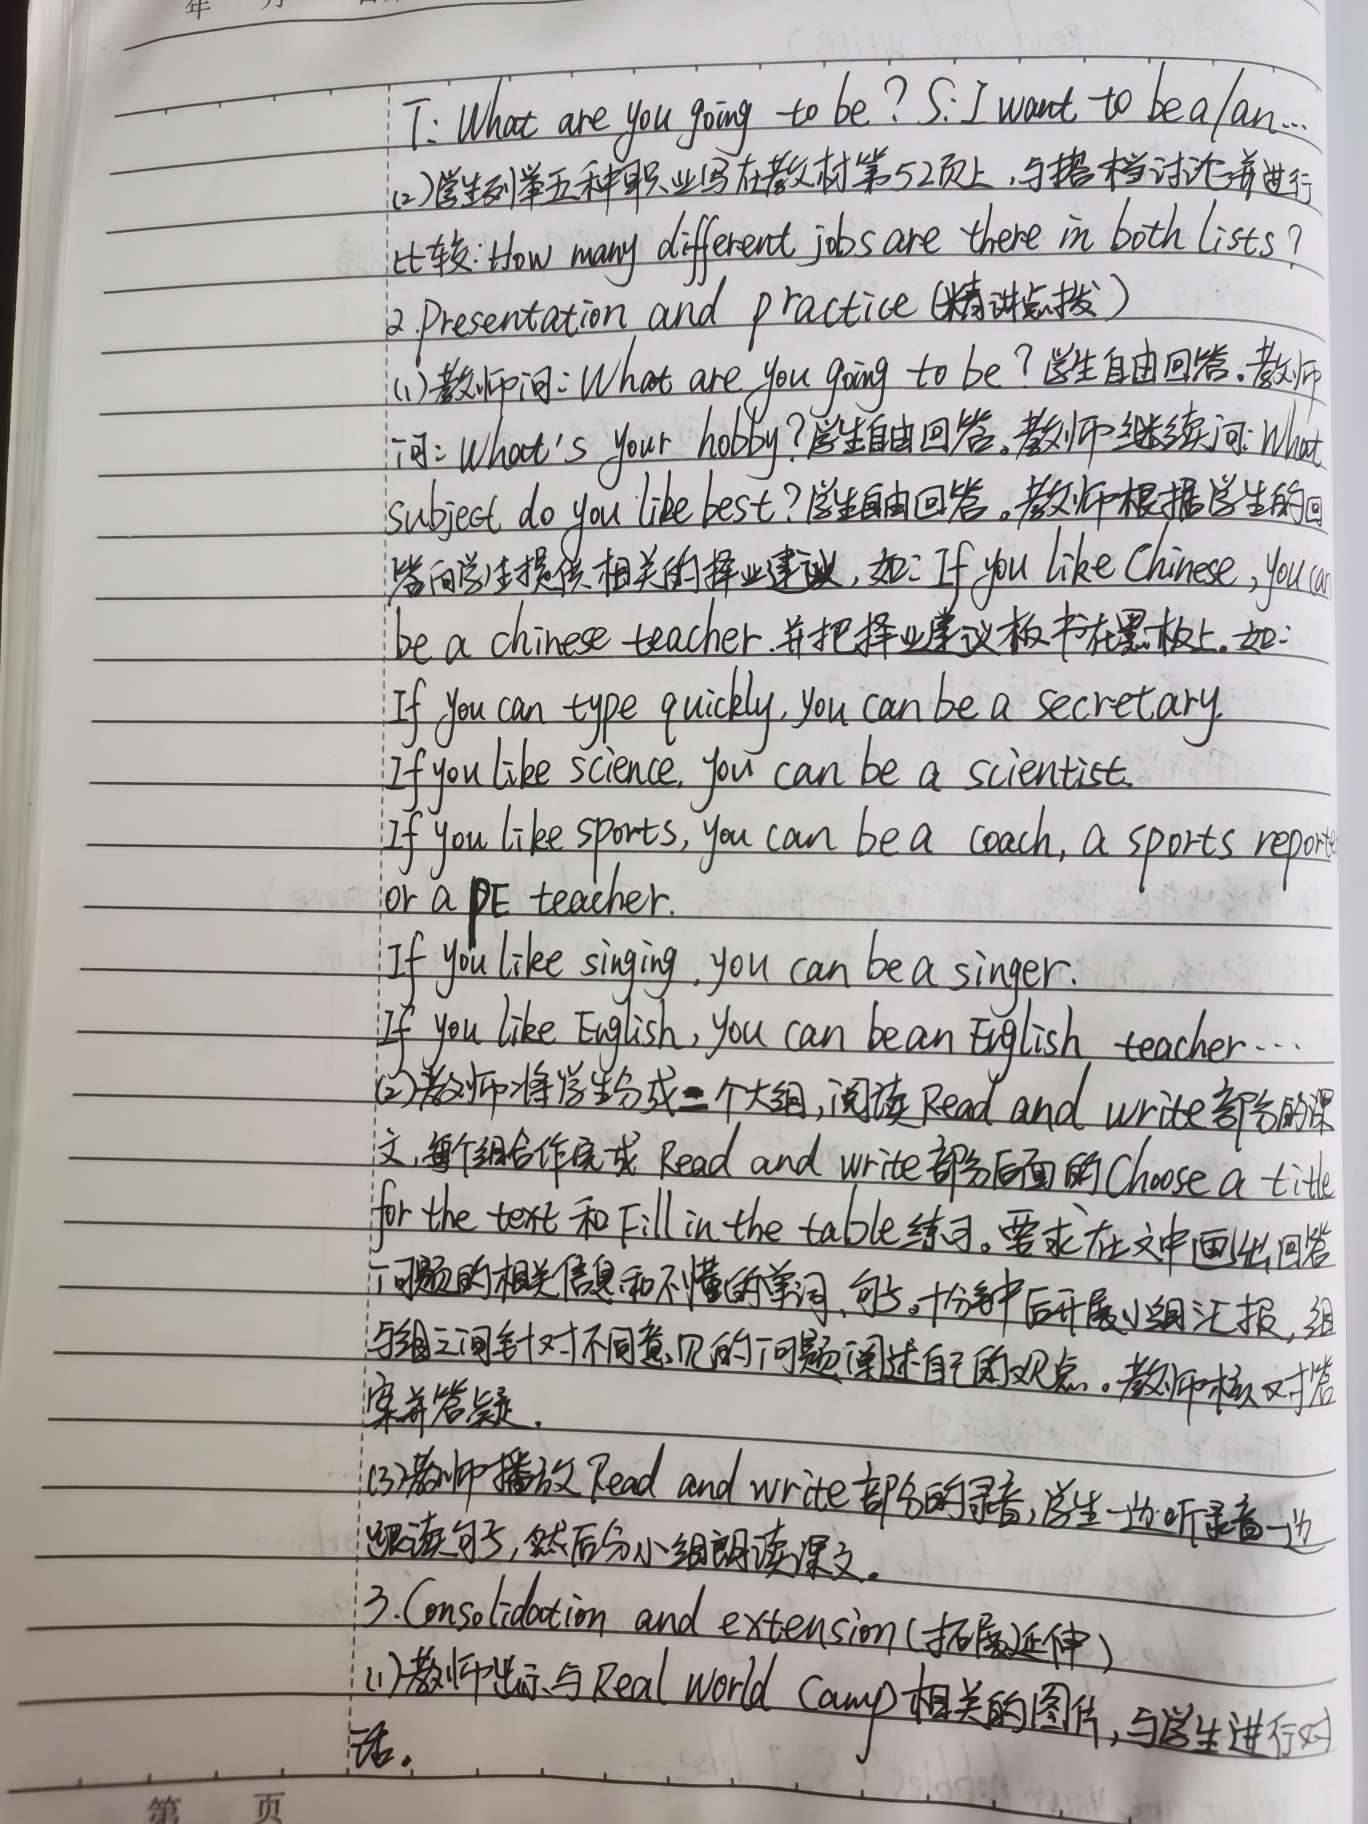 年 月
T: What are you going to be? S: I want to be a/an...
(2)学生列举五种职业写在教材第52页上,与搭档讨论并进行
比较:How many different jobs are there in both lists?
2.Presentation and practice(精讲点拨)
(1)教师问:What are you going to be?学生自由回答。教师
问:What's your hobby?学生自由回答。教师继续问:What
subject do you like best?学生自由回答。教师根据学生的回
答向学生提供相关的择业建议,如:If you like Chinese, you can
be a chinese teacher.并把择业建议板书在黑板上。如:
If you can type quickly, you can be a secretary.
If you like science, you can be a scientist.
If you like sports, you can be a coach, a sports reporte
or a PE teacher.
If you like singing, you can be a singer.
If you like English, you can be an English teacher...
(2)教师将学生分成二个大组,阅读Read and write部分的课
文,每个组合作完成 Read and write部分后面的Choose a title
for the text和Fill in the table练习。要求在文中画出回答
问题的相关信息和不懂的单词、句子。十分钟后开展小组汇报,组
与组之间针对不同意见的问题阐述自己的观点。教师核对答
案并答疑.
(3)教师播放Read and write部分的录音,学生一边听录音一边
跟读句子,然后分小组朗读课文。
3.Consolidation and extension(拓展延伸)
(1)教师出示与Real World Camp相关的图片,与学生进行对
话。
第 页